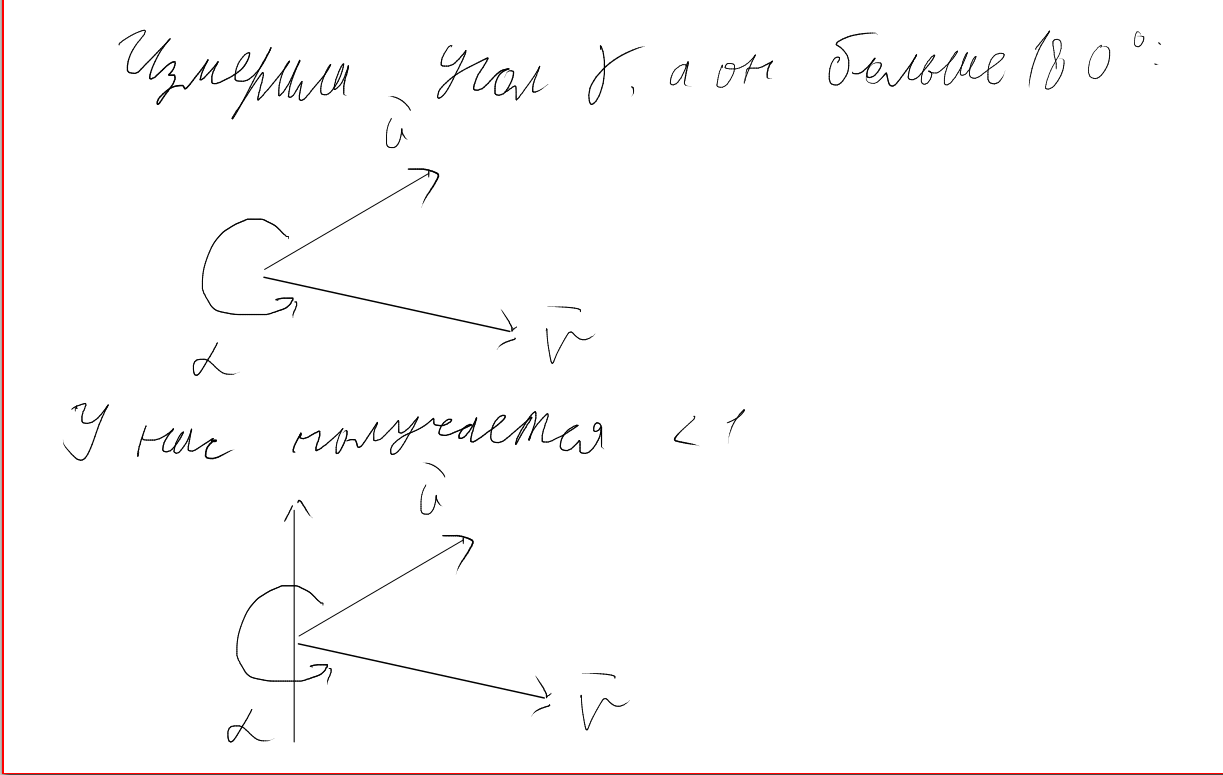 Измерила угол γ, а он больше 180°:
ū
v̄
α
У нас получается < 1
ū
v̄
α